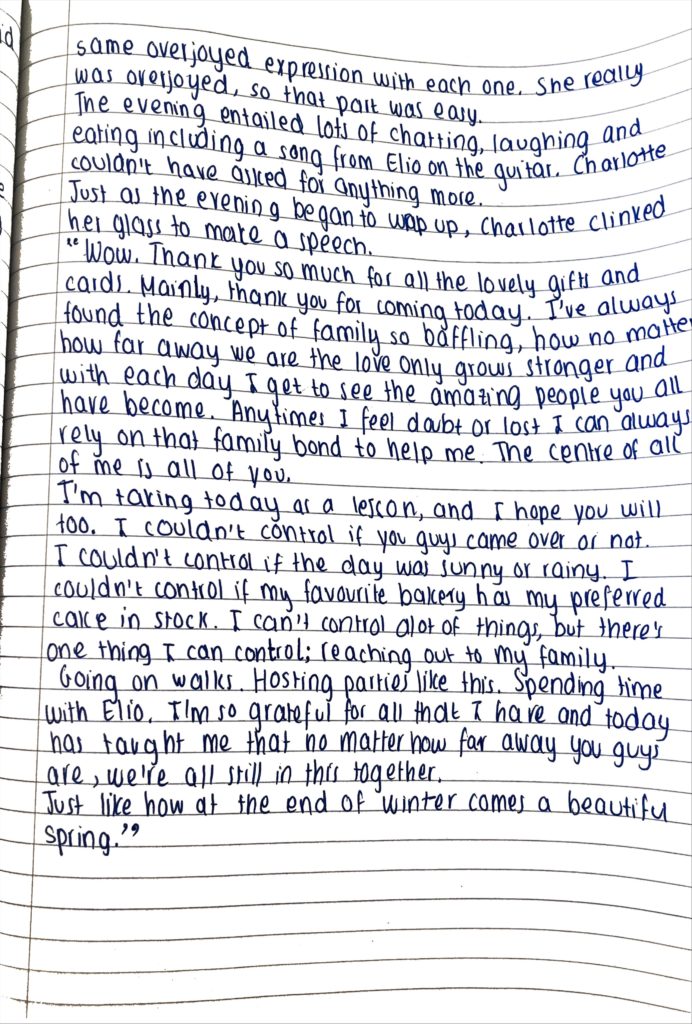 id
same overjoyed expression with each one. She really
was overjoyed, so that part was easy.
The evening entailed lots of chatting, laughing and
eating including a song from Elio on the guitar. Charlotte
couldn't have asked for anything more.
Just as the evening began to wrap up, Charlotte clinked
her glass to make a speech.
"Wow. Thank you so much for all the lovely gifts and
cards. Mainly, thank you for coming today. I've always
found the concept of family so baffling, how no matter
how far away we are the love only grows stronger and
with each day I get to see the amazing people you all
have become. Anytimes I feel doubt or lost I can always
rely on that family bond to help me. The centre of all
of me is all of you.
I'm taking today as a lesson, and I hope you will
too. I couldn't control if you guys came over or not.
I couldn't control if the day was sunny or rainy. I
couldn't control if my favourite bakery has my preferred
cake in stock. I can't control alot of things, but there's
one thing I can control; reaching out to my family.
Going on walks. Hosting parties like this. Spending time
with Elio. I'm so grateful for all that I have and today
has taught me that no matter how far away you guys
are, we're all still in this together.
Just like how at the end of winter comes a beautiful
spring."